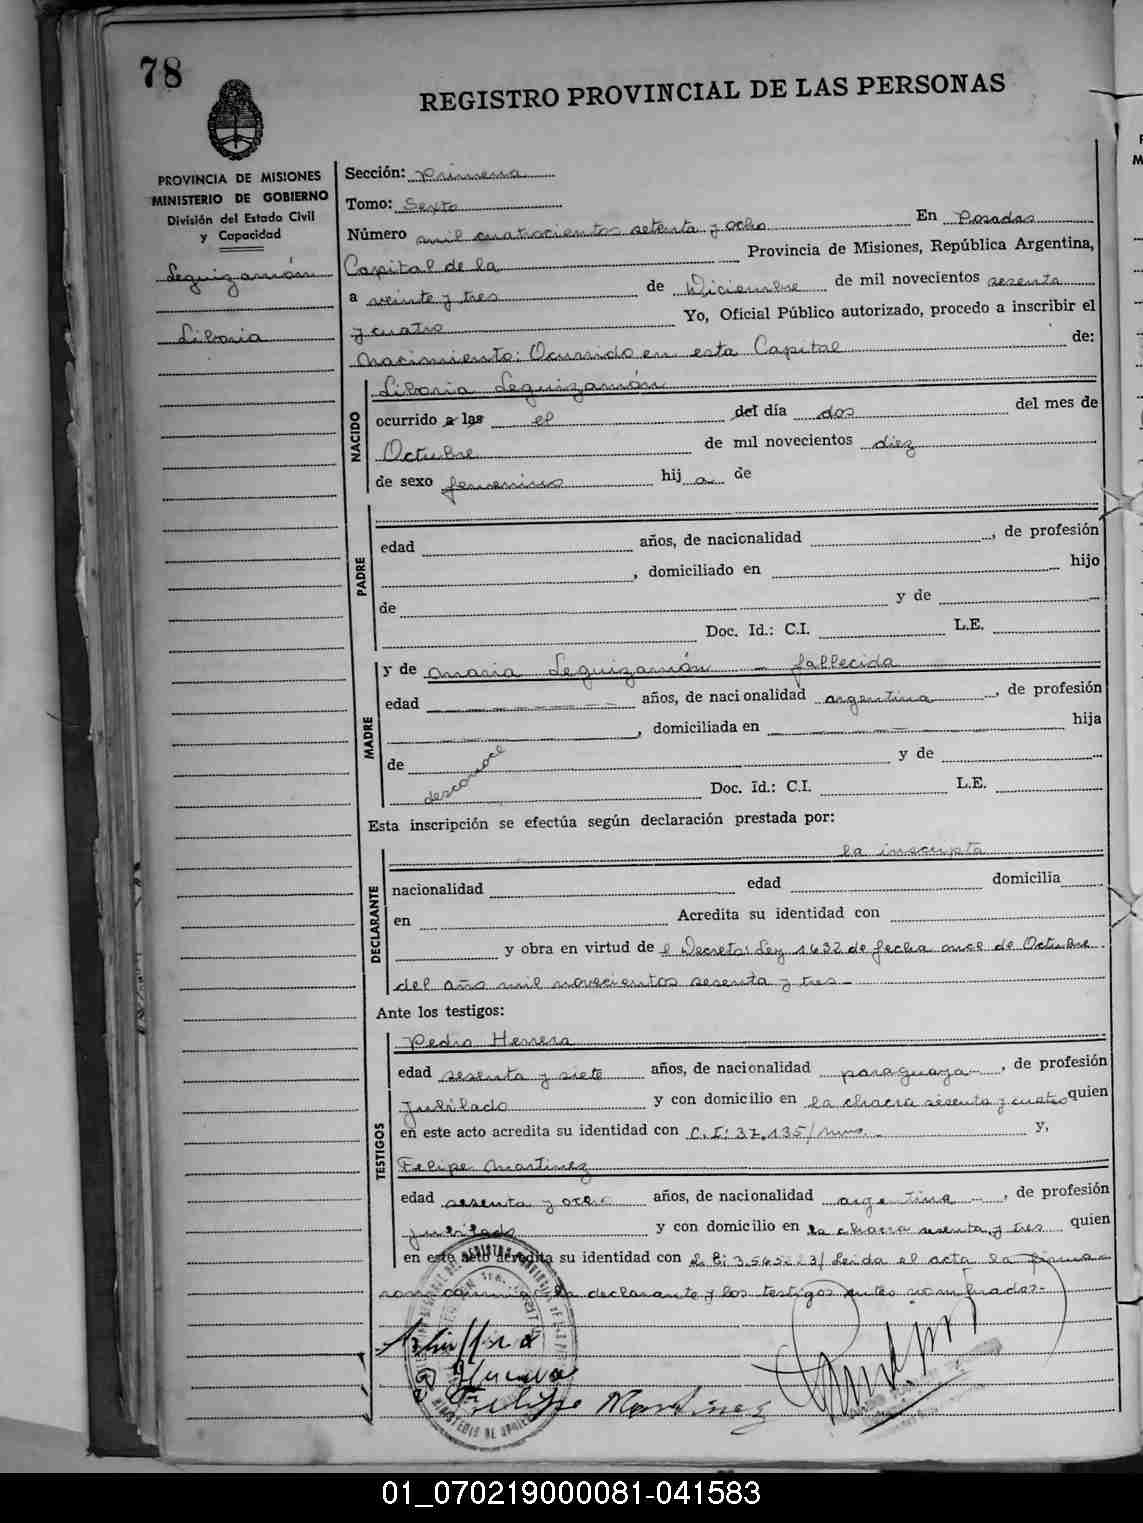 78
REGISTRO PROVINCIAL DE LAS PERSONAS
PROVINCIA DE MISIONES
MINISTERIO DE GOBIERNO
División del Estado Civil
y Capacidad
Leguizamón
Liboria
Sección: Primera
Tomo: Sexto
Número mil cuatrocientos setenta y ocho En Posadas
Capital de la Provincia de Misiones, República Argentina,
a veinte y tres de Diciembre de mil novecientos sesenta
y cuatro Yo, Oficial Público autorizado, procedo a inscribir el
Nacimiento: Ocurrido en esta Capital de:
NACIDO
Liboria Leguizamón
ocurrido a las el del día dos del mes de
Octubre de mil novecientos diez
de sexo femenino hij a de
PADRE
edad años, de nacionalidad , de profesión
, domiciliado en hijo
de y de
Doc. Id.: C.I. L.E.
MADRE
y de Maria Leguizamón - fallecida
edad años, de nacionalidad argentina , de profesión
, domiciliada en hija
de y de
desconoce Doc. Id.: C.I. L.E.
Esta inscripción se efectúa según declaración prestada por:
DECLARANTE
la inscripta
nacionalidad edad domicilia
en Acredita su identidad con
y obra en virtud de l Decreto: Ley 1632 de fecha once de Octubre
del año mil novecientos sesenta y tres-
Ante los testigos:
TESTIGOS
Pedro Herrera
edad sesenta y siete años, de nacionalidad paraguaya , de profesión
Jubilado y con domicilio en la chacra sesenta y cuatro quien
en este acto acredita su identidad con C.I: 37.135/ y,
Felipe Martinez
edad sesenta y ocho años, de nacionalidad argentina , de profesión
Jubilado y con domicilio en la chacra sesenta y tres quien
en este acto acredita su identidad con Leida el acta la firma-
ron la declarante y los testigos antes nombrados-
Felipe Martinez
01_070219000081-041583